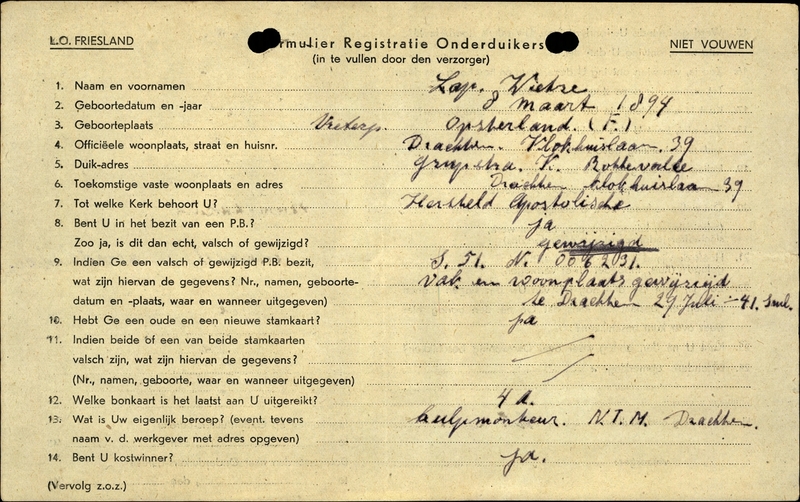 L.O. FRIESLAND
rmulier Registratie Onderduikers
NIET VOUWEN
(in te vullen door den verzorger)
1. Naam en voornamen Lap. Wietse
2. Geboortedatum en -jaar 8 maart 1894
3. Geboorteplaats Ureterp. Opsterland. (F.)
4. Officiëele woonplaats, straat en huisnr. Drachten. Klokhuislaan. 39
5. Duik-adres K. Rottevalle
6. Toekomstige vaste woonplaats en adres Drachten Klokhuislaan 39
7. Tot welke Kerk behoort U? Hersteld Apostolische
8. Bent U in het bezit van een P.B.? ja
Zoo ja, is dit dan echt, valsch of gewijzigd? gewijzigd
9. Indien Ge een valsch of gewijzigd P.B. bezit, S. 51. N. 006231.
wat zijn hiervan de gegevens? Nr., namen, geboorte- vak en woonplaats gewijzigd
datum en -plaats, waar en wanneer uitgegeven) te Drachten 29 Juli - 41. Sml.
10. Hebt Ge een oude en een nieuwe stamkaart? ja
11. Indien beide of een van beide stamkaarten
valsch zijn, wat zijn hiervan de gegevens?
(Nr., namen, geboorte, waar en wanneer uitgegeven)
12. Welke bonkaart is het laatst aan U uitgereikt? 4 A.
13. Wat is Uw eigenlijk beroep? (event. tevens hulpmonteur. N.T.M. Drachten.
naam v. d. werkgever met adres opgeven)
14. Bent U kostwinner? ja.
(Vervolg z.o.z.)